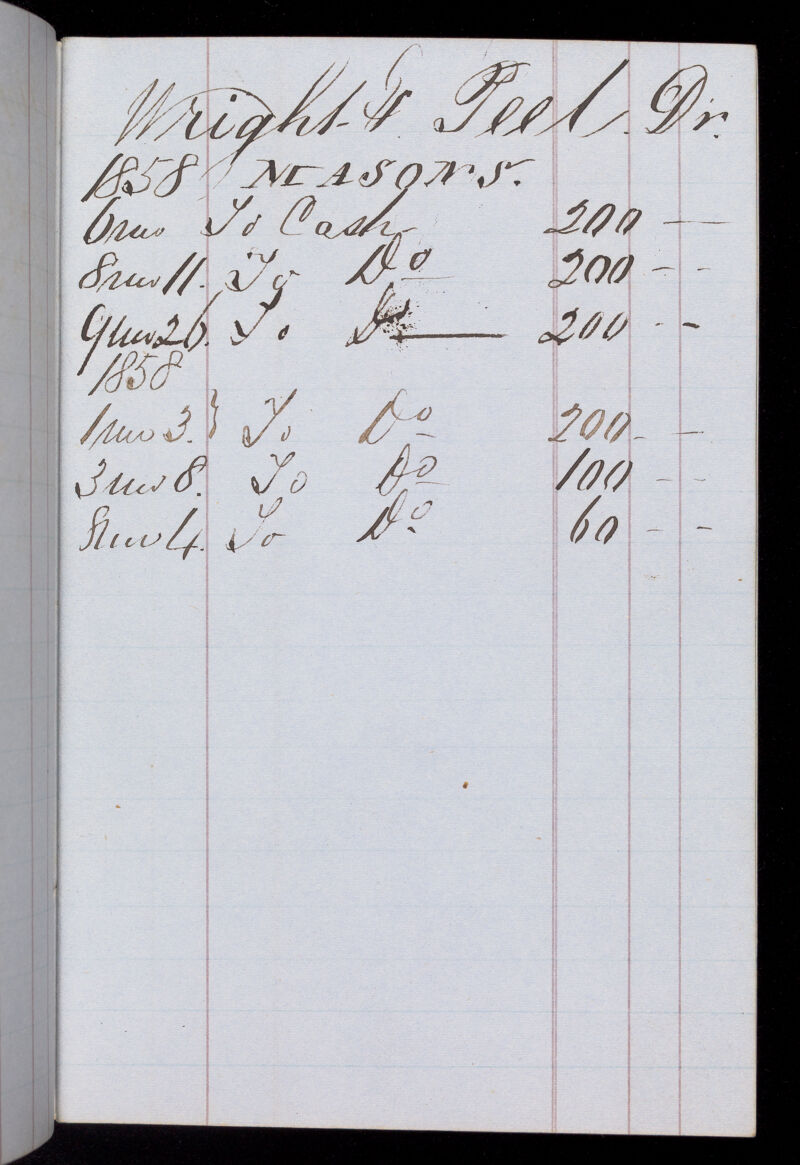 Wright & Peel Dr.
1858 MASONS.
6mo To Cash 200 —
8mo 11. To Do 200 - -
9mo 26. To Do — 200 - -
1858
1mo 3. } To Do 200 - —
3mo 8. To Do 100 - -
8mo 4. To Do 60 - -